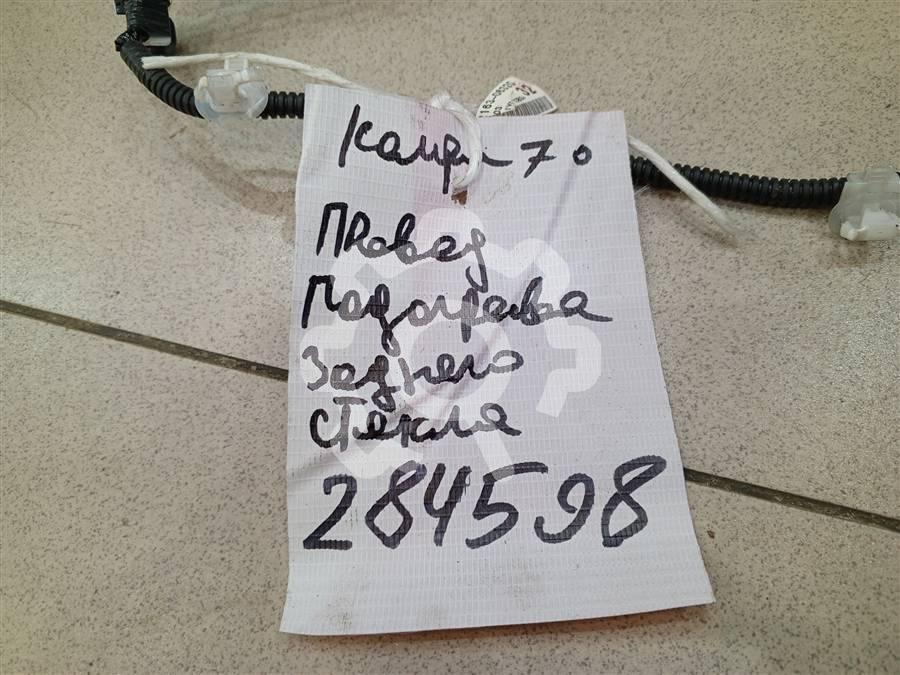 Камри 70
Провад
Подогрева
Заднего
стекла
284598